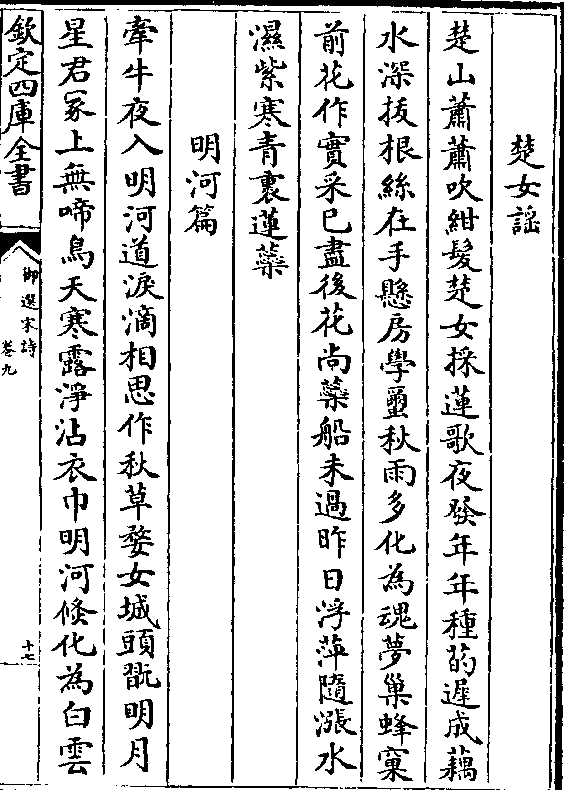 楚女謡
楚山蕭蕭吹紺髮楚女採蓮歌夜發年年種菂遲成藕
水深拔根絲在手懸房學蠒秋雨多化為魂夢巢蜂窠
前花作實采已盡後花尚蘂船未過昨日浮萍隨漲水
濕紫寒青裹蓮蘂
明河篇
牽牛夜入明河道淚滴相思作秋草婺女城頭翫明月
星君冢上無啼鳥天寒露淨沾衣巾明河倐化為白雲
欽定四庫全書
御選宋詩
卷九
十七